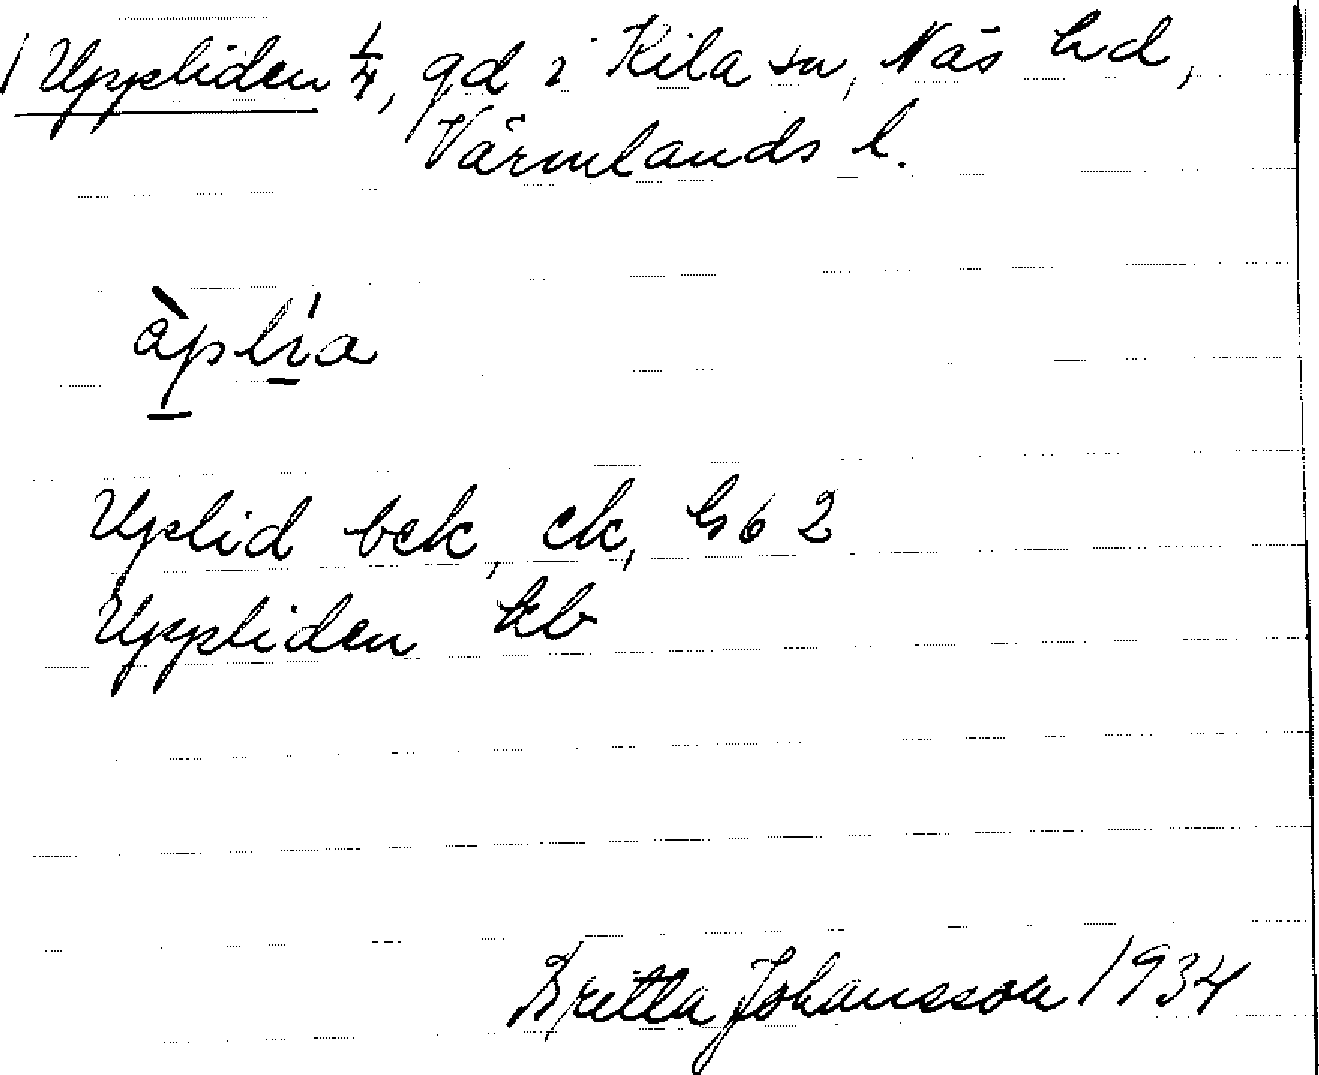 Uppliden 1/4, gd i Kila sn, Näs hd,
Värmlands l.
àplía
Uplid bek, ek, Gs 6 2
Uppliden kb
Britta Johansson 1934